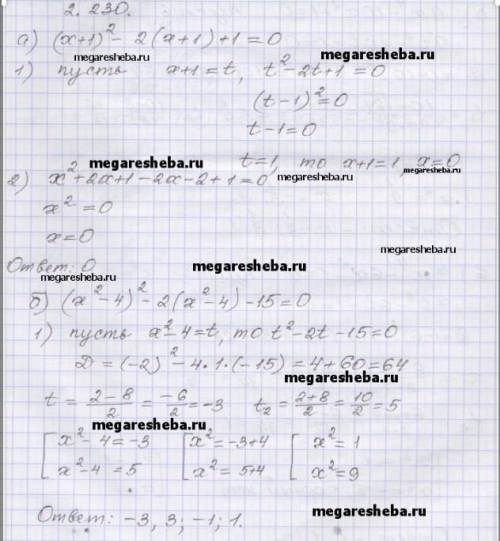 2.230.
а) (x+1)² - 2(x+1)+1=0
megaresheba.ru megaresheba.ru
1) пусть x+1=t, t²-2t+1=0
(t-1)²=0
t-1=0
megaresheba.ru t=1, то x+1=1, x=0
2) x²+2x+1-2x-2+1=0 megaresheba.ru megaresheba.ru
x²=0
x=0
megaresheba.ru
Ответ: 0 megaresheba.ru
megaresheba.ru
б) (x²-4)²-2(x²-4)-15=0
1) пусть x²-4=t, то t²-2t-15=0
D=(-2)²-4·1·(-15)=4+60=64
megaresheba.ru
t = (2-8)/2 = -6/2 = -3 t₂ = (2+8)/2 = 10/2 = 5
megaresheba.ru
[x²-4=-3 [x²=-3+4 [x²=1
x²-4=5 x²=5+4 x²=9
Ответ: -3, 3; -1; 1. megaresheba.ru